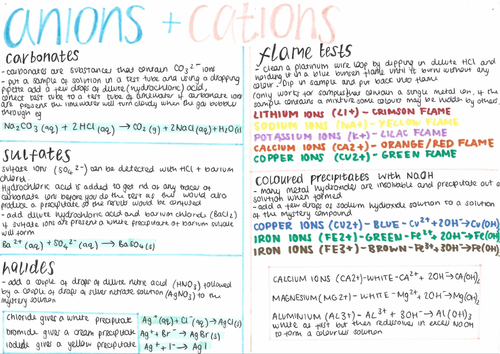 anions + cations
carbonates
- carbonates are substances that contain CO3²⁻ ions
- put a sample of solution in a test tube and using a dropping
pipette add a few drops of dilute (hydrochloric) acid,
connect test tube to a test tube of limewater if carbonate ions
are present the limewater will turn cloudy when the gas bubbles
through eg
Na2CO3 (aq) + 2HCl (aq) → CO2 (g) + 2NaCl (aq) + H2O(l)
sulfates
sulfate ions (SO4²⁻) can be detected with HCl + barium
chlorid
Hydrochloric acid is added to get rid of any traces of
carbonate ions before you do the test as this would also
produce a precipitate so the results would be confused
- add dilute hydrochloric and barium chloride (BaCl2)
if sulfate ions are present a white precipitate of barium sulfate
will form
Ba²⁺ (aq) + SO4²⁻ (aq) → BaSO4 (s)
halides
- add a couple of drops of dilute nitric acid (HNO3) followed
by a couple of drops of silver nitrate solution (AgNO3) to the
mystery solution
chloride gives a white precipitate Ag⁺ (aq) + Cl⁻ (aq) → AgCl (s)
bromide gives a cream precipitate Ag⁺ + Br⁻ → AgBr (s)
iodide gives a yellow precipitate Ag⁺ + I⁻ → AgI
flame tests
- clean a platinum wire loop by dipping in dilute HCl and
holding it in a blue bunsen flame until it burns without any
colour. Dip in sample and put back into flame
(only works for samples that contain a single metal ion, if the
sample contains a mixture some colours may be hidden by others
LITHIUM IONS (LI+) - CRIMSON FLAME
SODIUM IONS (NA+) - YELLOW FLAME
POTASSIUM IONS (K+) - LILAC FLAME
CALCIUM IONS (CA2+) - ORANGE/RED FLAME
COPPER IONS (CU2+) - GREEN FLAME
COLOURED precipitates with NaOH
- many metal hydroxides are insoluble and precipitate out of
solution when formed
- add a few drops of sodium hydroxide solution to a solution of
the mystery compound
COPPER IONS (CU2+) - BLUE - Cu²⁺ + 2OH⁻ → Cu(OH)
IRON IONS (FE2+) - GREEN - Fe²⁺ + 2OH⁻ → Fe(OH)
IRON IONS (FE3+) - BROWN - Fe³⁺ + 3OH⁻ → Fe(OH)
CALCIUM IONS (CA2+) - WHITE - CA²⁺ + 2OH → CA(OH)2
MAGNESIUM (MG2+) - WHITE - Mg²⁺ + 2OH → Mg(OH)2
ALUMINIUM (AL3+) - AL³⁺ + 3OH⁻ → Al(OH)3
white at first but then redissolves in excess NaOH
to form a colourless solution